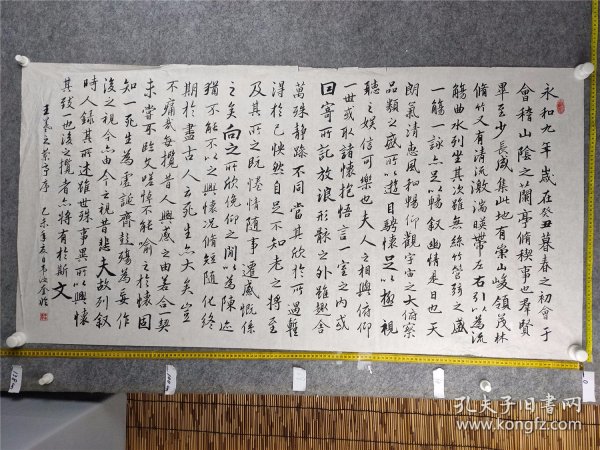 永和九年歲在癸丑暮春之初會于
會稽山陰之蘭亭脩稧事也羣賢
畢至少長咸集此地有崇山峻領茂林
脩竹又有清流激湍暎帶左右引以為流
觴曲水列坐其次雖無絲竹管弦之盛
一觴一詠亦足以暢叙幽情是日也天
朗氣清惠風和暢仰觀宇宙之大俯察
品類之盛所以遊目騁懷足以極視
聽之娛信可樂也夫人之相與俯仰
一世或取諸懷抱悟言一室之内或
因寄所託放浪形骸之外雖趣舍
萬殊靜躁不同當其欣於所遇暫
得於己怏然自足不知老之將至
及其所之既惓情隨事遷感慨係
之矣向之所欣俛仰之閒以為陳迹
猶不能不以之興懷況脩短隨化終
期於盡古人云死生亦大矣豈
不痛哉每攬昔人興感之由若合一契
未嘗不臨文嗟悼不能喻之於懷固
知一死生為虛誕齊彭殤為妄作
後之視今亦由今之視昔悲夫故列叙
時人錄其所述雖世殊事異所以興懷
其致一也後之攬者亦將有於斯文
王羲之
孔夫子旧书网
www.kongfz.com